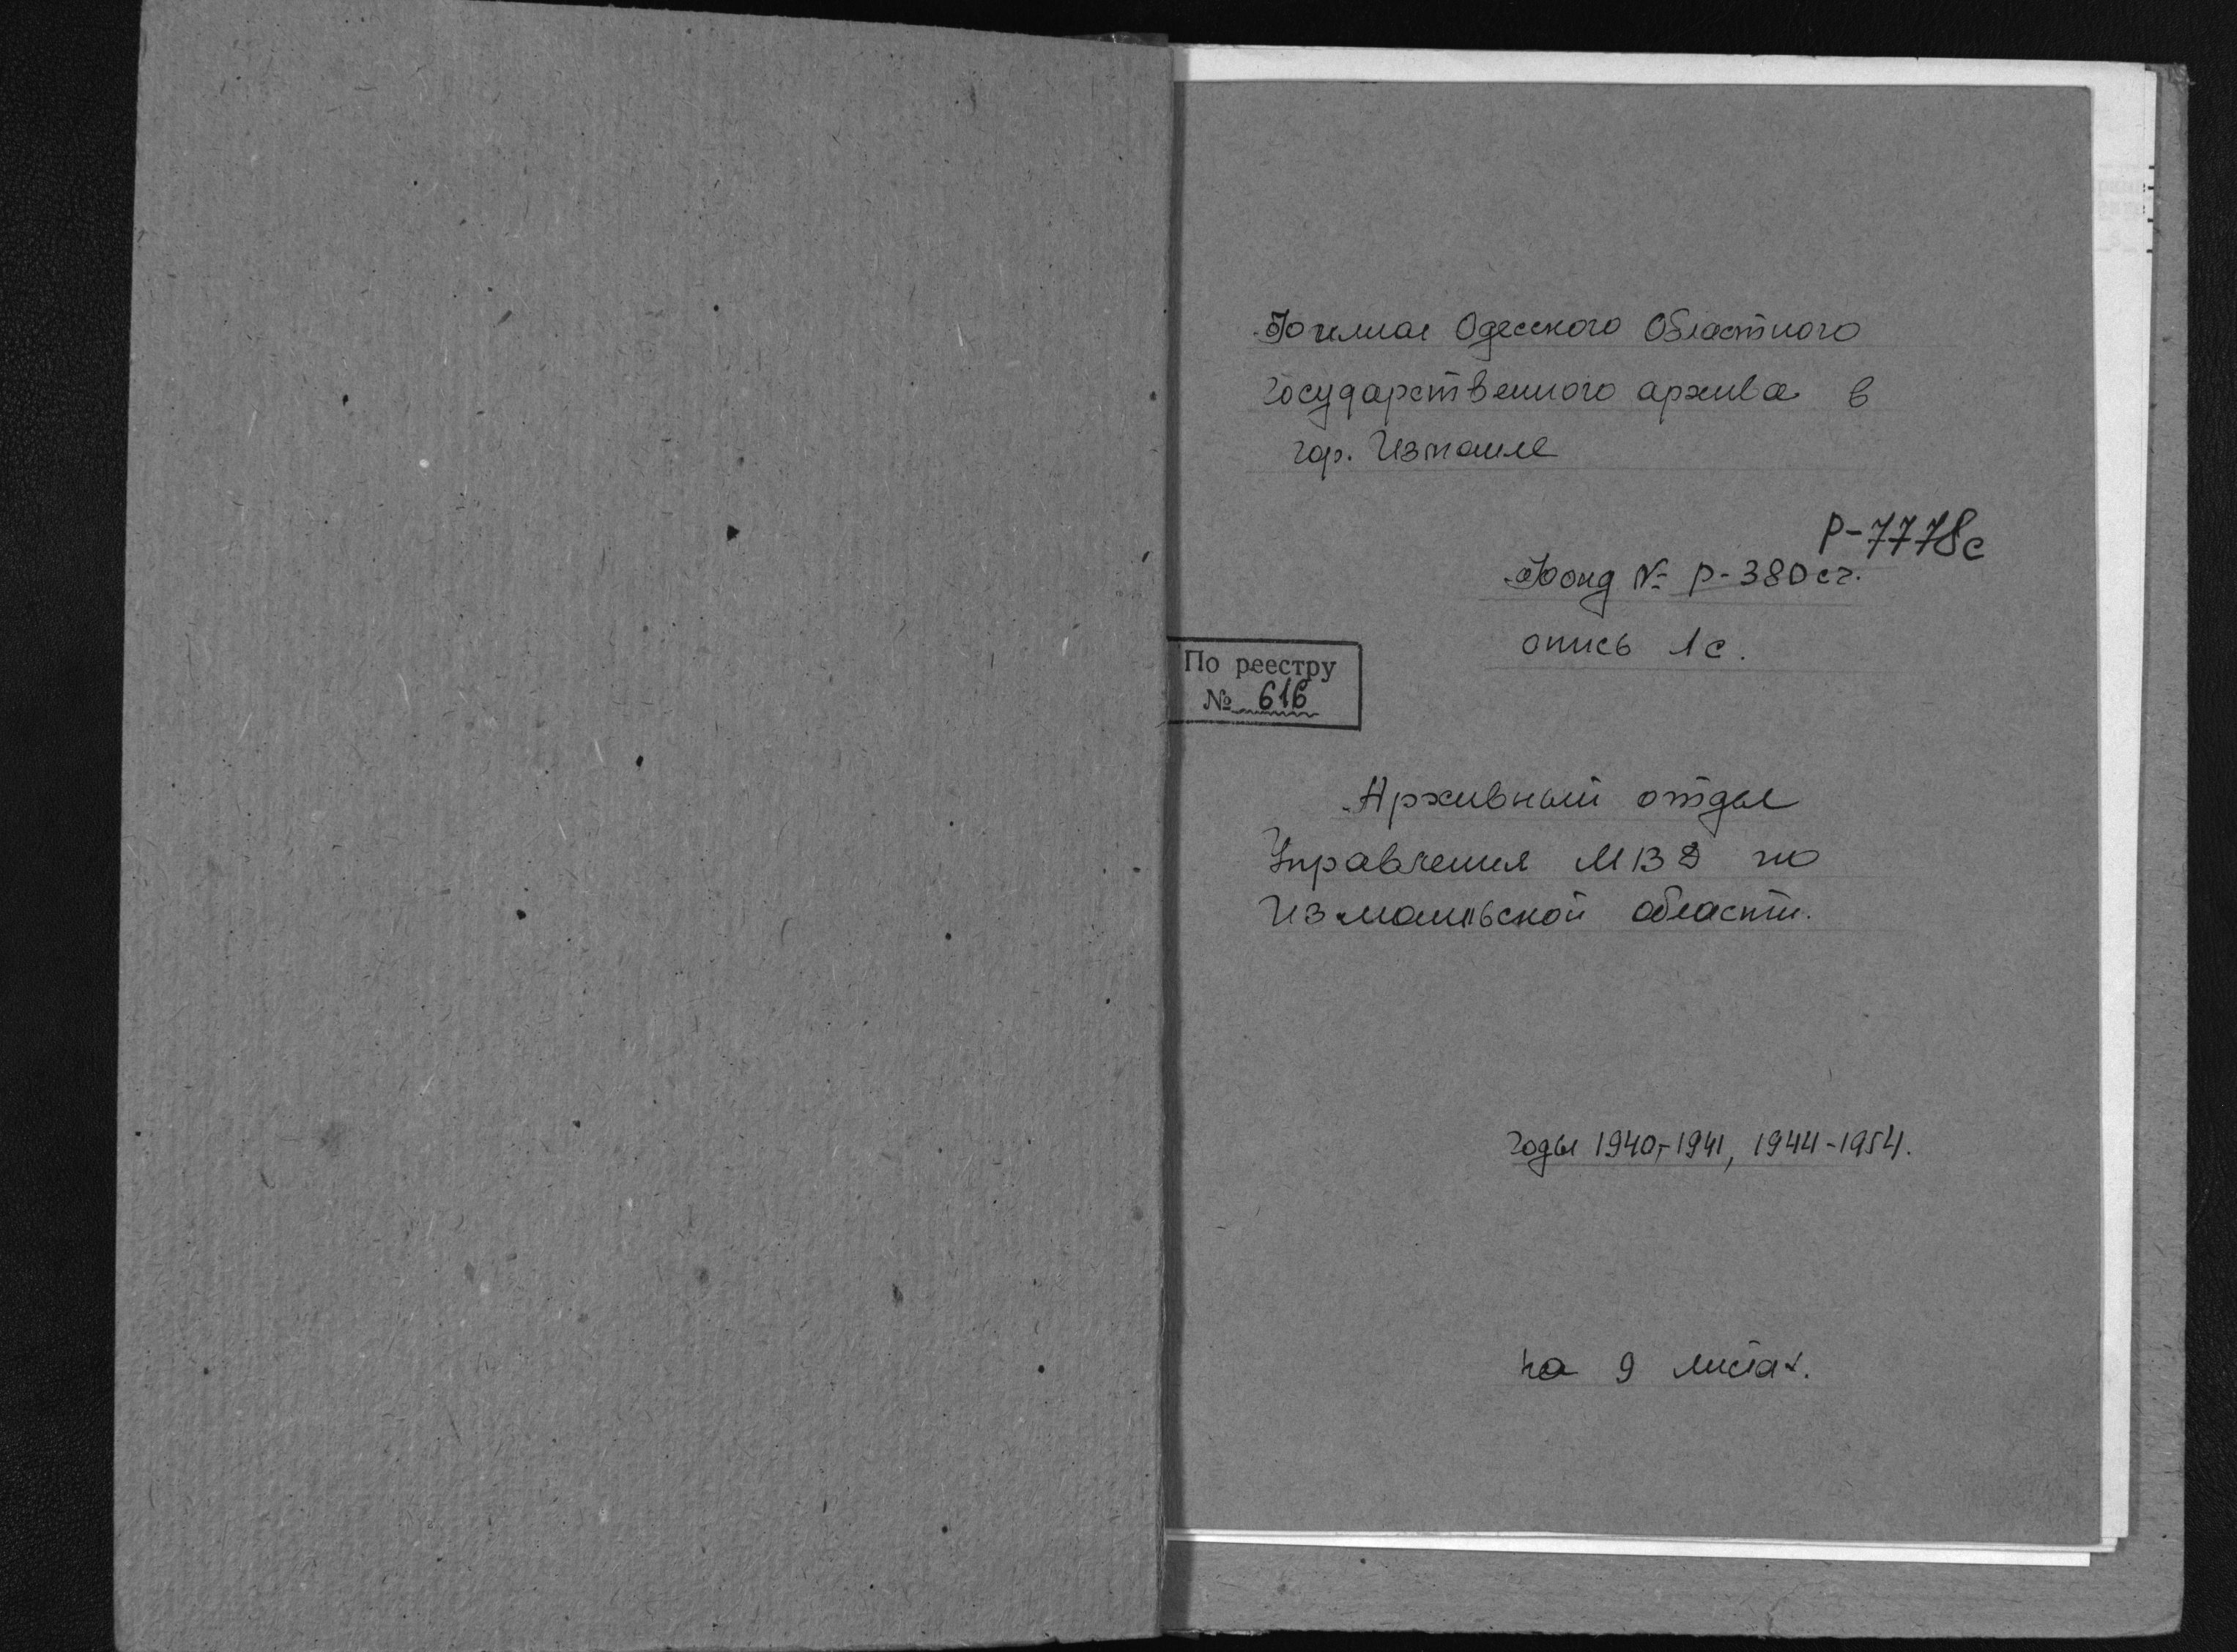 Филиал Одесского Областного
государственного архива в
гор. Измаиле
Р-7778с
Фонд № Р-380сч.
опись 1с.
По реестру
№ 616
Архивный отдел
Управления МВД по
Измаильской области.
годы 1940-1941, 1944-1954.
на 9 листах.